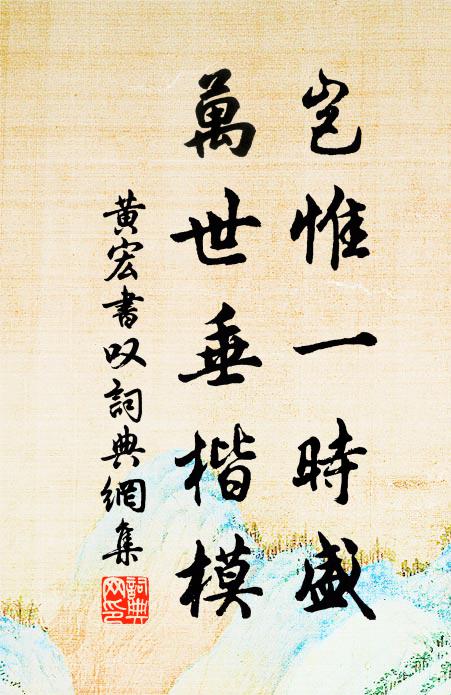 豈惟一時盛
萬世垂楷模
黄宏書以詞典網集
詞典網印